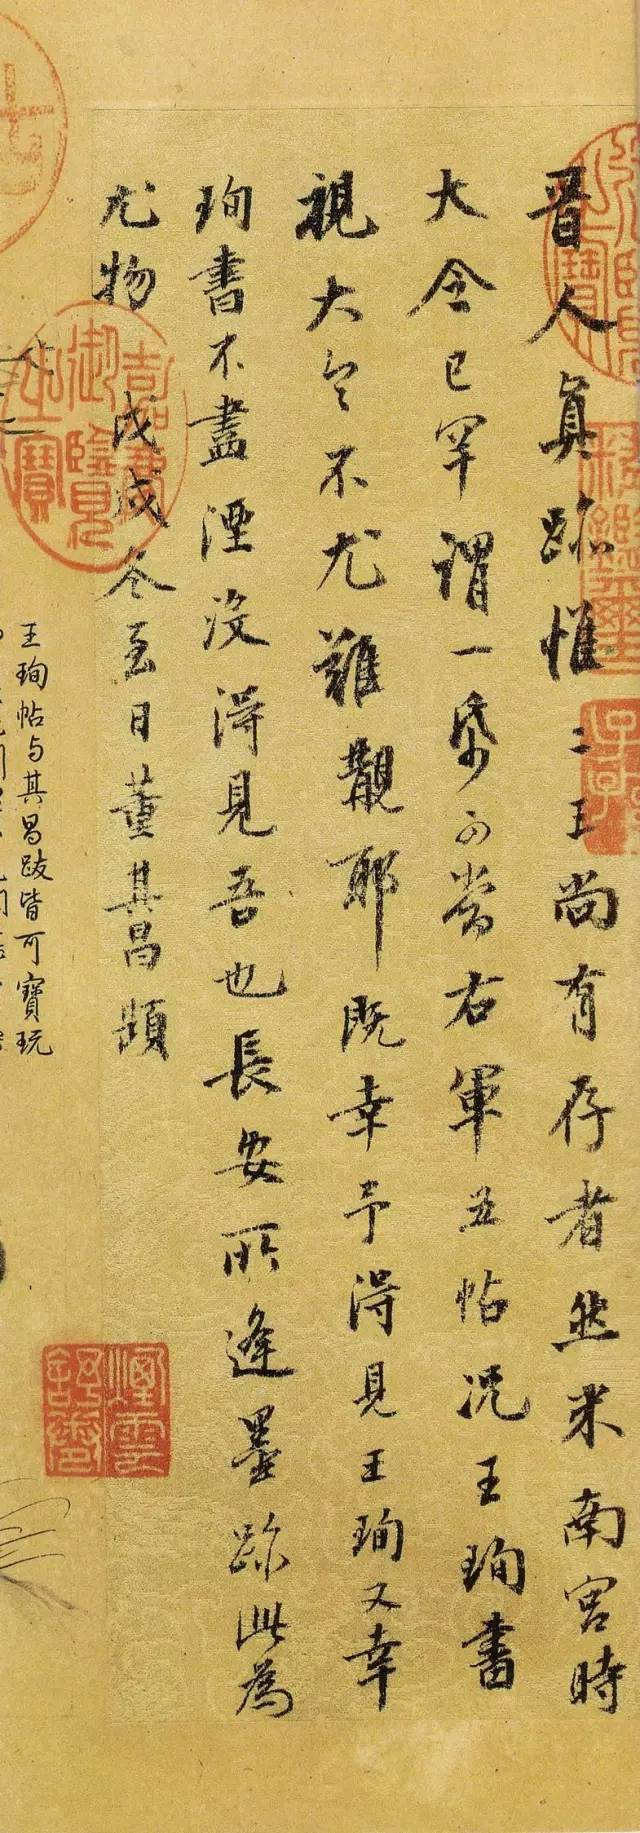 晉人真跡惟二王尚有存者然米南宮時
大令已罕謂一帋可當右軍五帖況王珣書
視大令不尤難覯耶既幸予得見王珣又幸
珣書不盡湮沒得見吾也長安所逢墨跡此為
尤物　戊戌冬至日董其昌題
嘉慶御覽之寶
王珣帖与其昌跋皆可寶玩